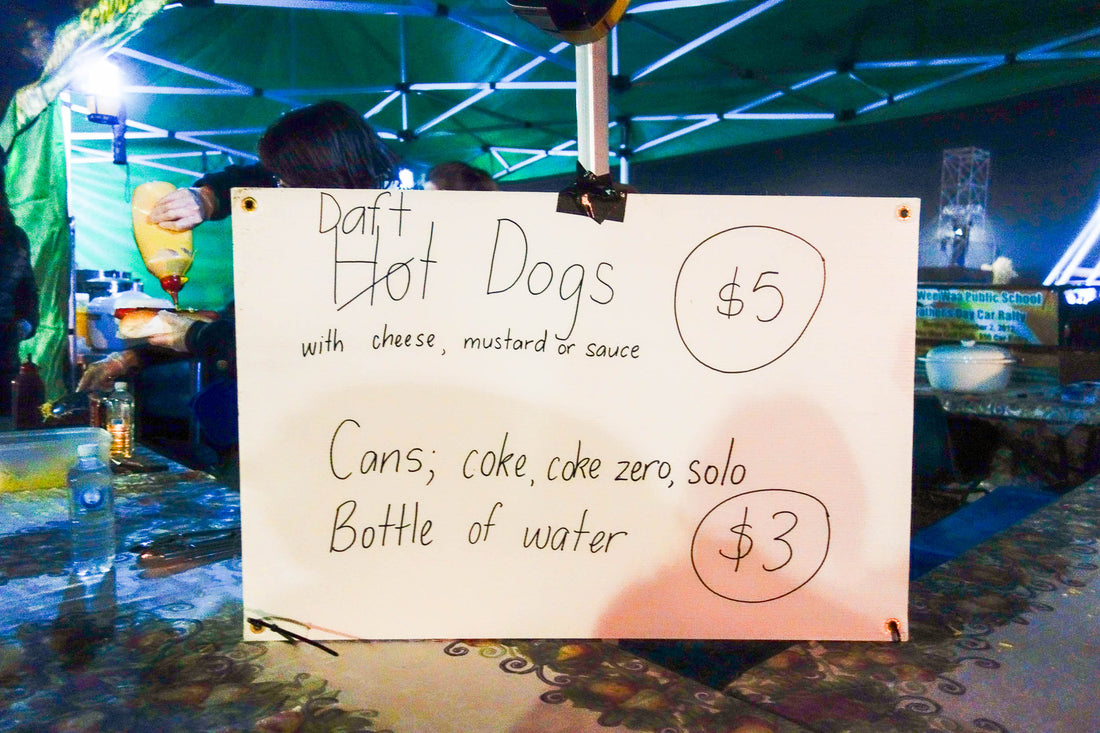 Daft
Hot Dogs
$5
with cheese, mustard or sauce
Cans; coke, coke zero, solo
Bottle of water
$3
Wee Waa Public School
Fathers Day Car Rally
2, 2012